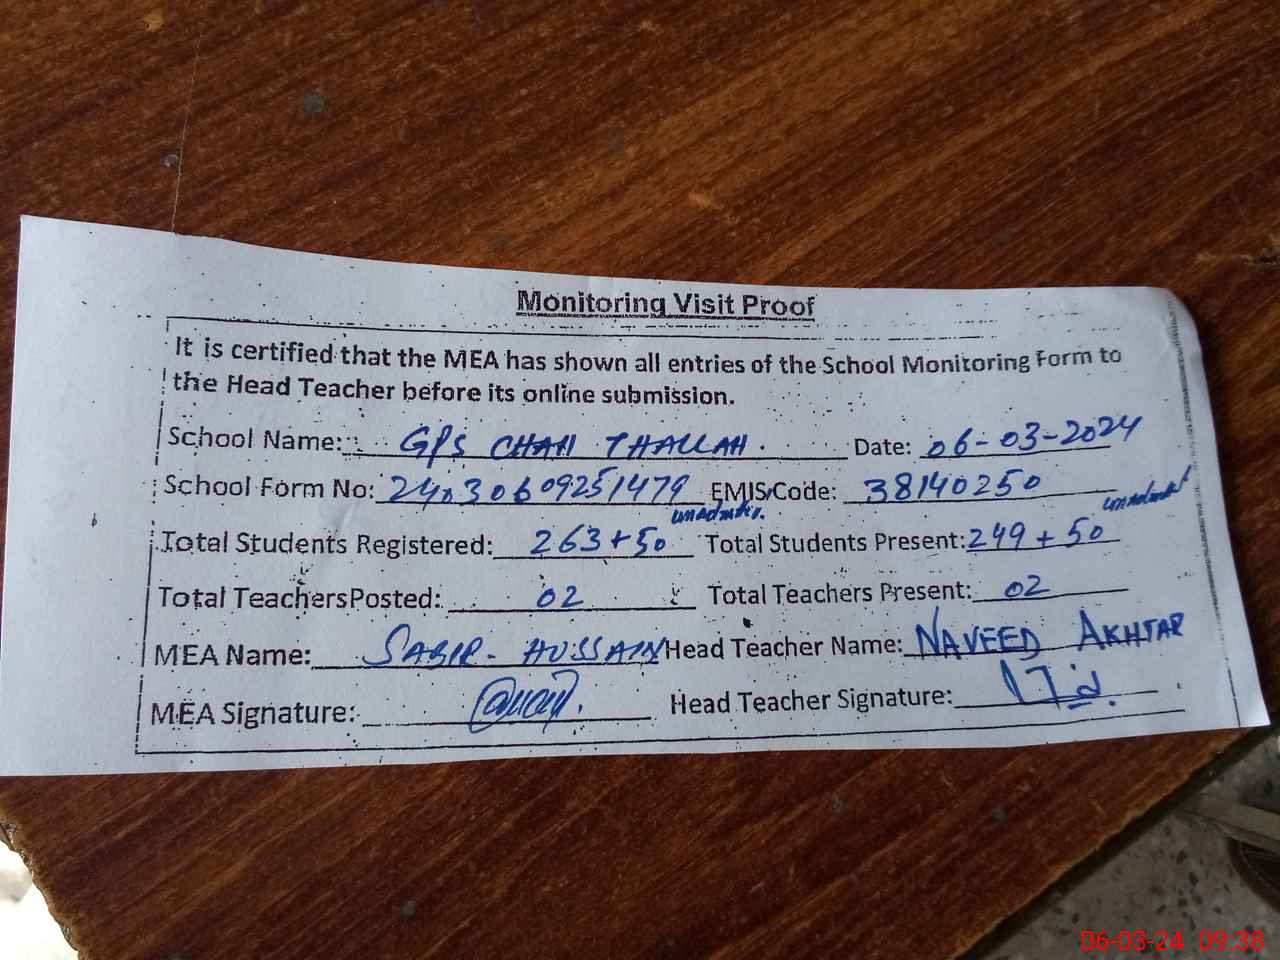 Monitoring Visit Proof
It is certified that the MEA has shown all entries of the School Monitoring Form to
the Head Teacher before its online submission.
School Name: GPS CHAH THALLAH. Date: 06-03-2024
School Form No: 24030609251479 EMIS Code: 38140250
Total Students Registered: 263+50 Total Students Present: 249+50
Total Teachers Posted: 02 Total Teachers Present: 02
MEA Name: SABIR-HUSSAIN Head Teacher Name: NAVEED AKHTAR
MEA Signature: Head Teacher Signature:
06-03-24 09:38